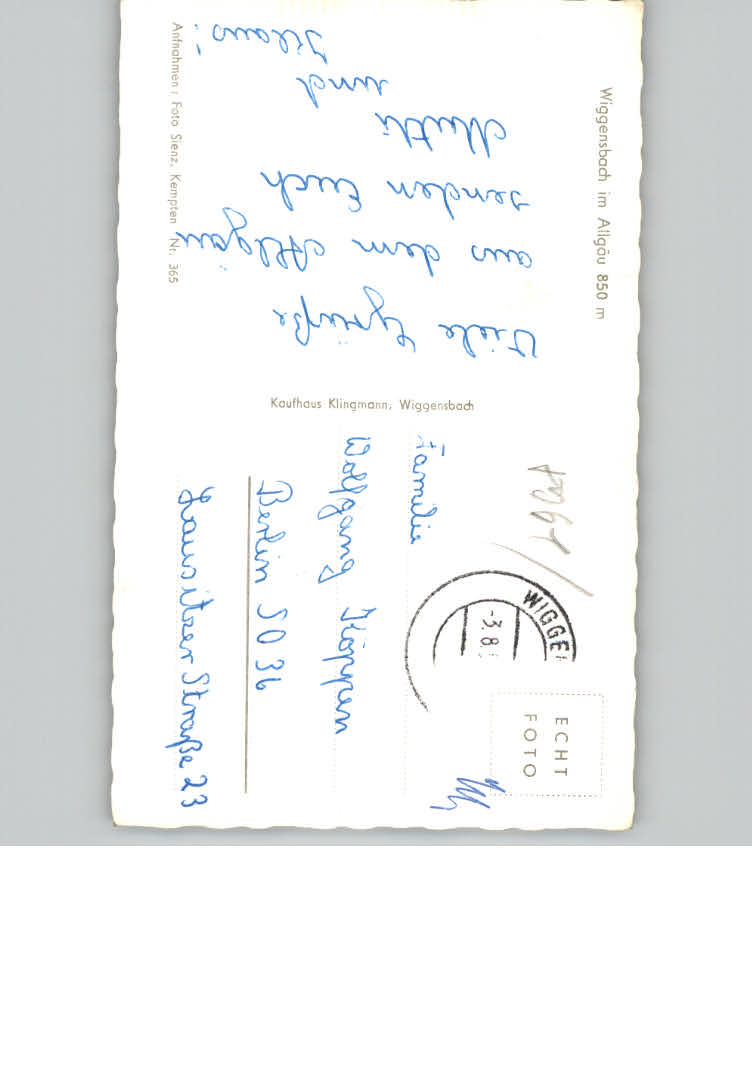 Wiggensbach im Allgäu 850 m
Viele Grüße
aus dem Allgäu
senden Euch
Mutti
und
Klaus!
Aufnahmen: Foto Sienz, Kempten Nr. 365
Kaufhaus Klingmann, Wiggensbach
ECHT
FOTO
WIGGE
-3.8
1961
Familie
Wolfgang Köppen
Berlin SO 36
Lausitzer Straße 23